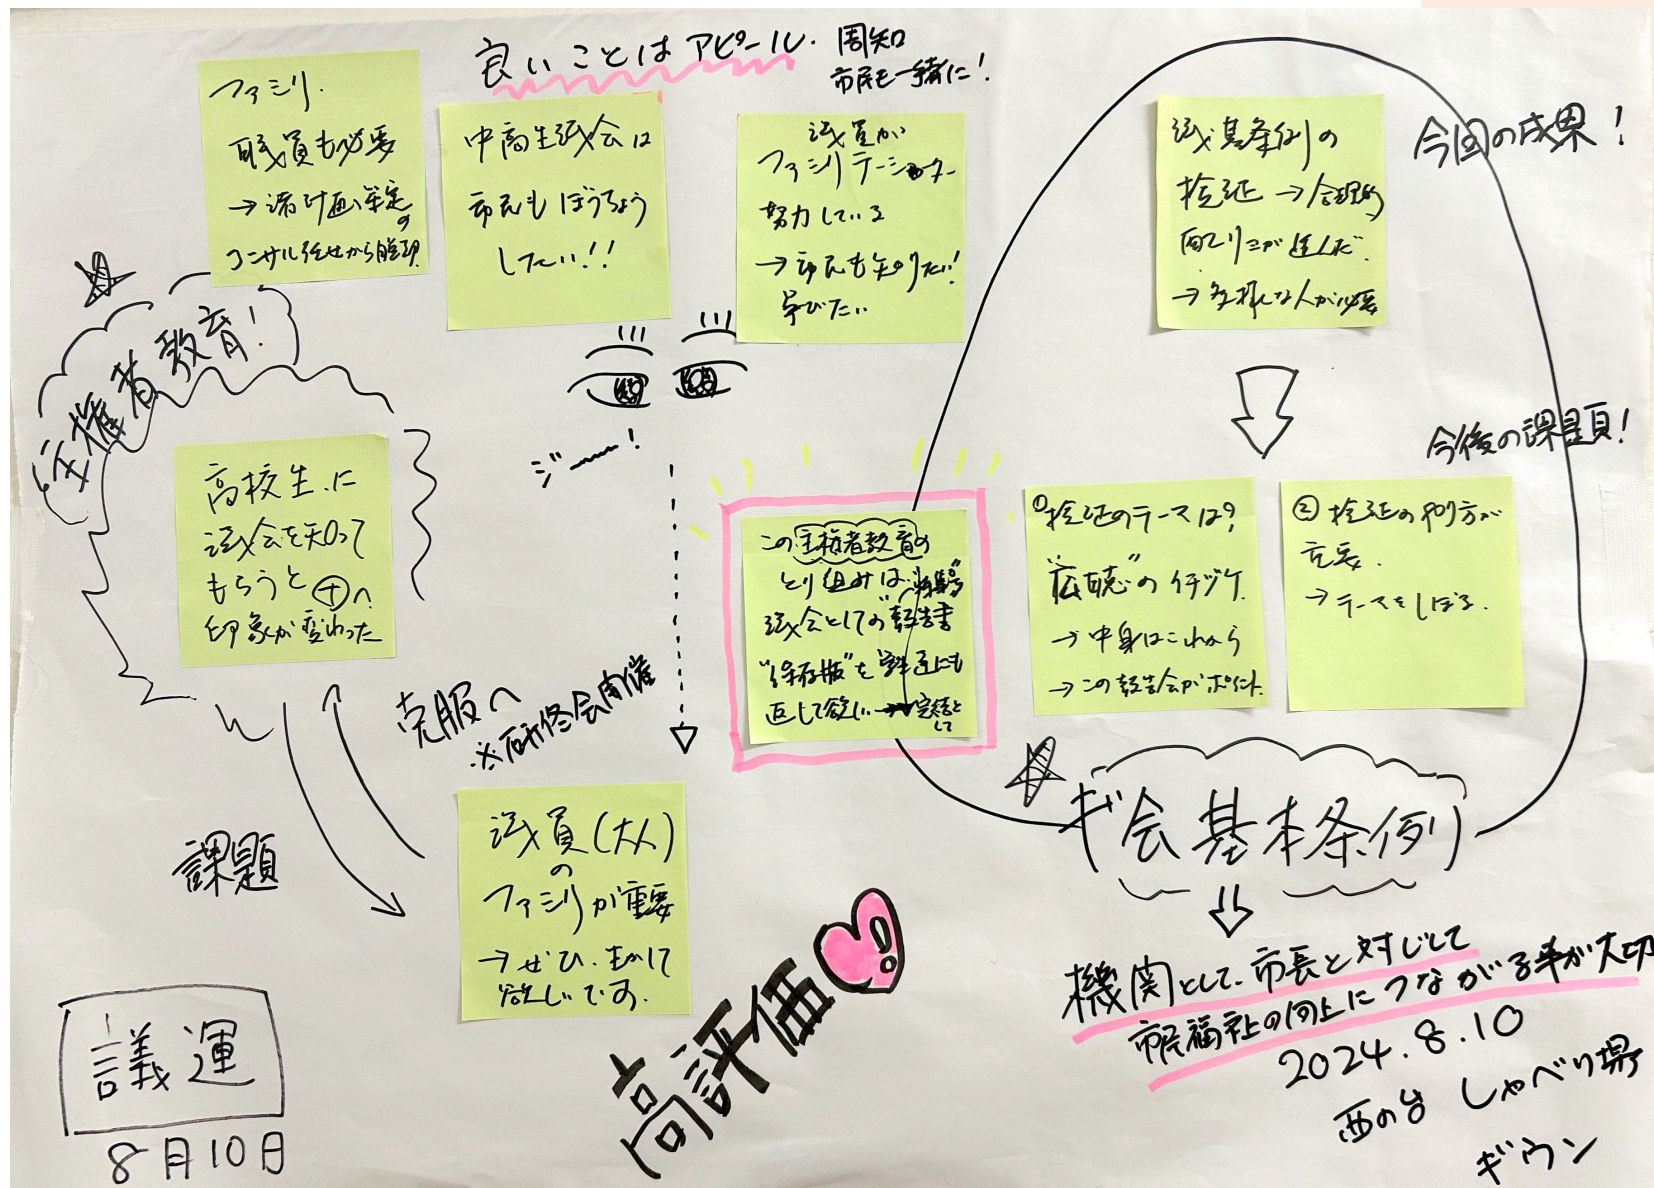 良いことはアピール.
周知
市民も一緒に!
ファシリ.
職員も必要
→諸計画、策定の
コンサル任せから脱却
中高生議会は
市民もぼうちょう
したい!!
議員が
ファシリテーター
努力している
→市民も知りたい!
学びたい
議.基条例の
検証→合理的
配リョが進んだ.
→多様な人が必要
今回の成果!
主権者教育!
ジー!
今後の課題!
高校生に
議会を知って
もらうと+へ
印象が変わった
この主権者教育の
とり組みは、
議会としての報告書
"保存版"を学生にも
返して欲しい→完結と
して
①検証のテーマは?
"広聴"のイチヅケ.
→中身はこれから
→この報告会がポイント.
②検証のやり方が
→テーマをしぼる.
克服へ
※研修会開催
課題
議員(大人)
の
ファシリが重要
→ぜひ、生かして
欲しいです.
ギ会基本条例
高評価!
機関として.市長と対じして
市民福祉の向上につながる事が大切
2024.8.10
西の台 しゃべり場
ギウン
議運
8月10日